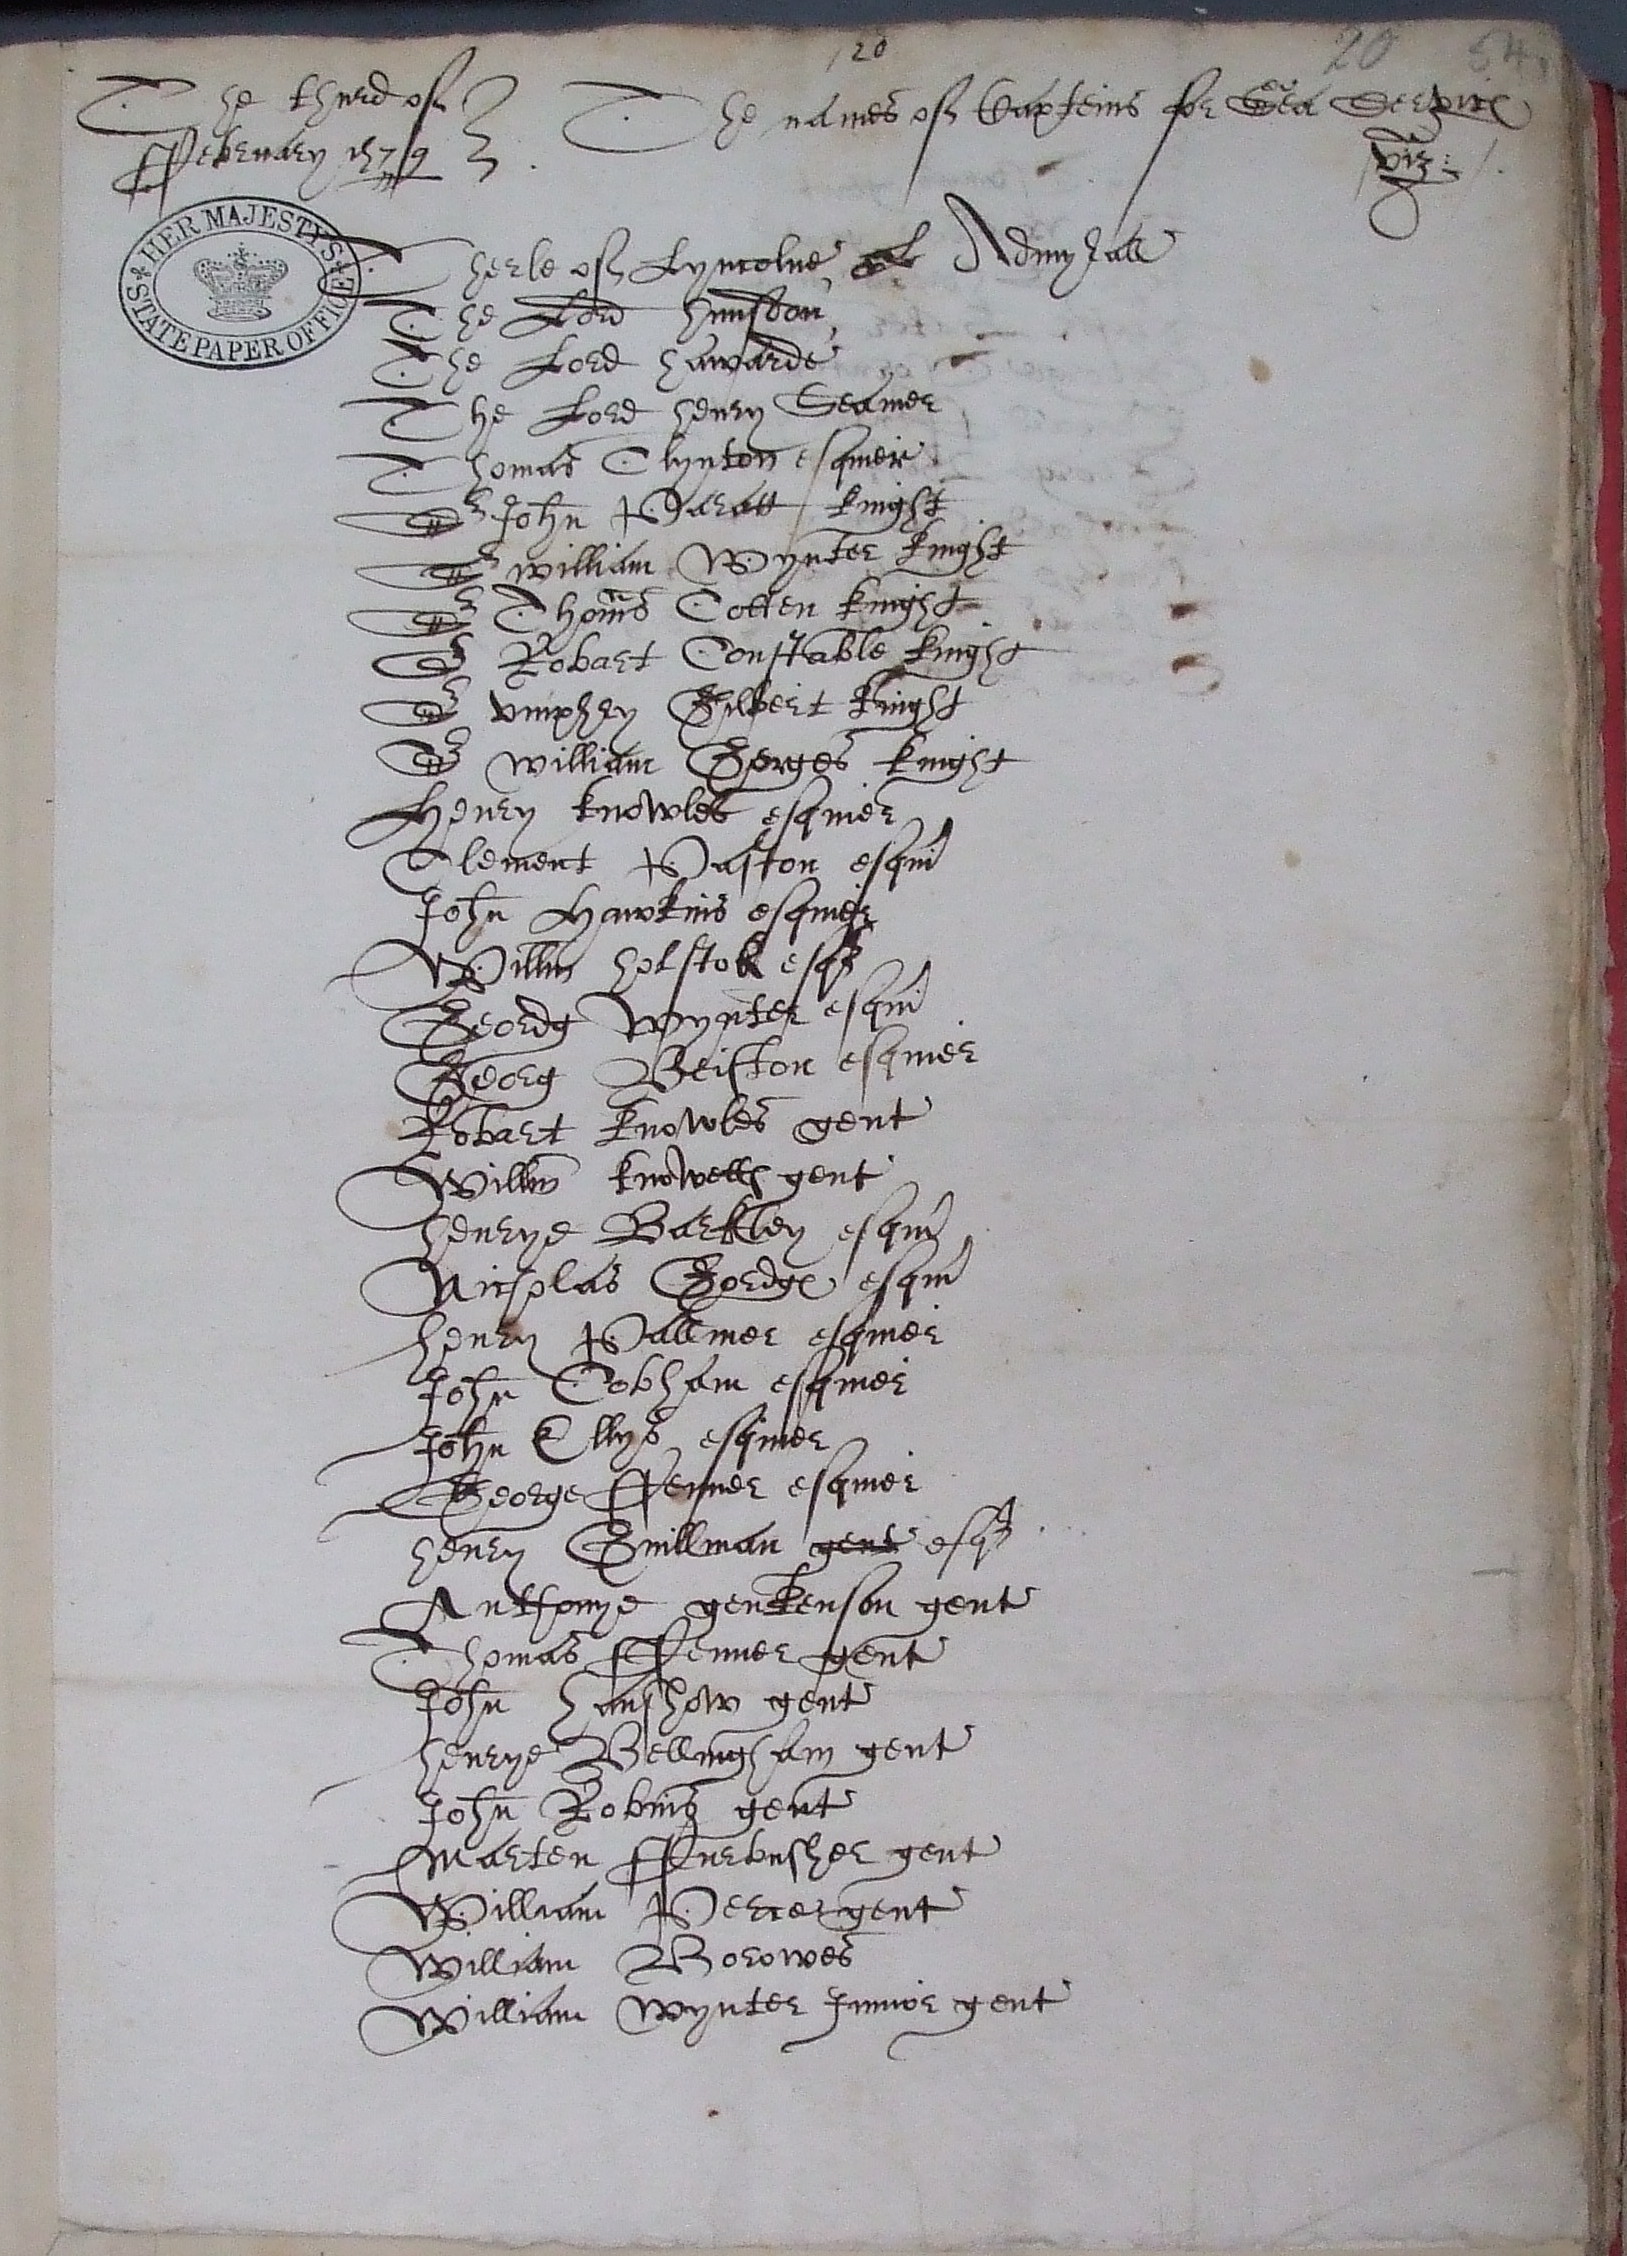 20
20 54
The thyrd of The names of Capteins for Sea Servis
Ffebruary 1579 viz:
HER MAJESTY'S STATE PAPER OFFICE
Therle of Lyncolne Admyrall
The Lord Hunsdon
The Lord Hawarde
The Lord Henry Seamer
Thomas Clynton esquier
Sr John Paratt knight
Sr William Wynter knight
Sr Thoms Cotten knight
Sr Robart Constable knight
Sr Vmphry Gilbert knight
Sr William Gorges knight
Henry Knowles esquier
Clement Paston esqui
John Hawkins esquier
Willm Holstok esqr
Geordg Wynter esqui
Georg Beiston esquier
Robart Knowles gent
Willm Knowells gent
Henrye Barkley esqui
Nicholas Gordges esqui
Henry Pallmer esquier
John Cobham esquier
John Ellys esquier
George Ffenner esquier
Henry Guillman gent esqr
Anthonye Jenkenson gent
Thomas Ffenner gent
John Hanshow gent
Henrye Bellingham gent
John Robins gent
Marten Ffurbusher gent
William Percer gent
William Borowes
William Wynter Junior gent